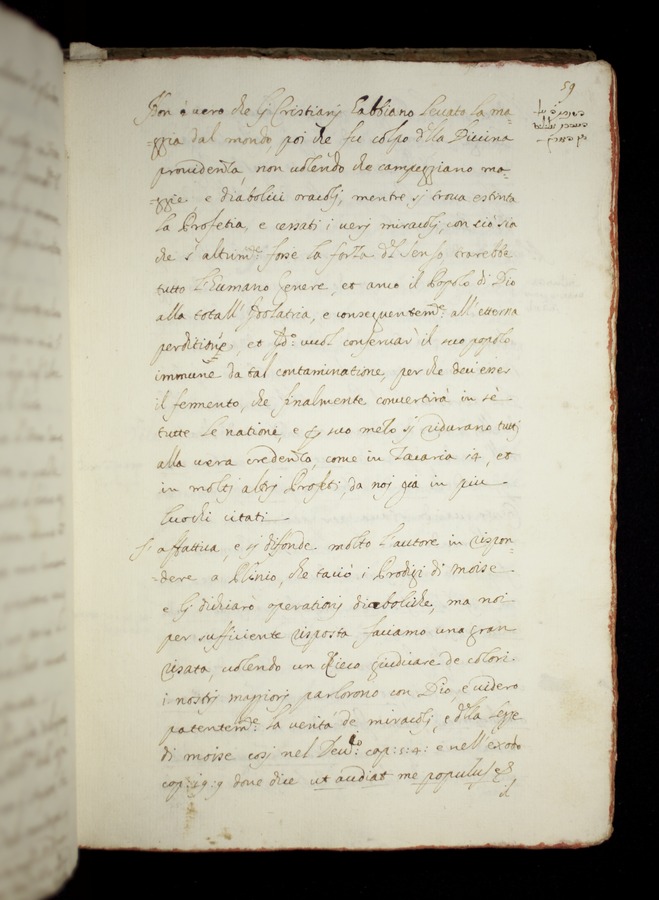 59
Non è vero che gl'Cristianj habbiano levato la ma-
=ggia dal mondo, poi che fu colpo d'lla Divina
providenza, non volendo che campeggiano ma-
=ggie, e diabolici oracolj, mentre sj trova estinta
la Profetia, e cessati i verj miracolj, con ciò sia
che s'altrim.te forse la forza d'l senso trarebbe
tutto l'humano genere, et anco il Popolo di Dio
alla totall' Idolatria, e conseguentem.te all'etterna
perditione, et vuol conservar' il suo popolo
immune da tal contaminatione, per che devi esser
il fermento, che finalmente convertirà in sè
tutte le nationi, e suo mezo sj ridurano tuttj
alla vera credenza, come in Zacaria 14, et
in moltj altrj Profeti, da noj già in piu
luochi citati
S'affattica, e sj difonde molto l'autore in rispon-
=dere a Plinio, che tacciò i Prodigi di Moise
e gl' dichiarò operationj diaboliche, ma noi
per sufficiente risposta faciamo una gran
risata, volendo un Cieco giudicare de colori.
i nostrj maggiorj parlorono con Dio, e videro
patentem.te la verita de miracolj, e d'lla legge
di moise cosi nel cap: 5: 4: e nell'exodo
cap: 19: 9 dove dice ut audiat me populus &
il